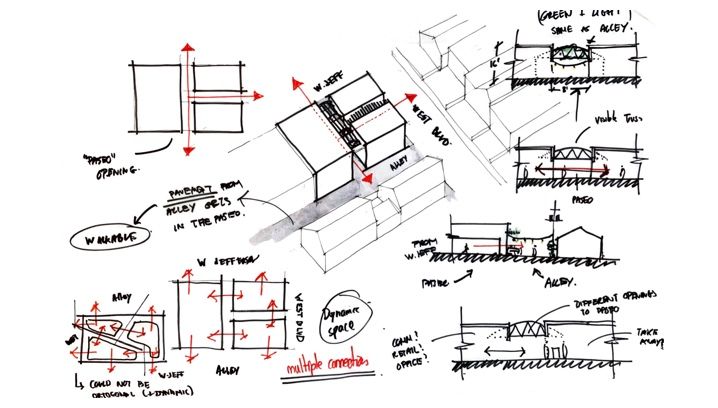 (GREEN + LIGHT)
SAME AS ALLEY.
16'
8'
W. JEFF
WEST BLVD.
ALLEY
"PASEO"
OPENING.
PAVEMENT FROM
ALLEY GETS
IN THE PASEO.
WALKABLE
Visible Truss
PASEO
FROM
W. JEFF
ALLEY.
DIFFERENT OPENINGS
TO PASEO
CONN?
RETAIL?
OFFICE?
Alley
W. JEFF
↳ COULD NOT BE
ORTOGONAL (+DYNAMIC)
W JEFFERSON
WEST BLVD
ALLEY
Dynamic
space
multiple connections